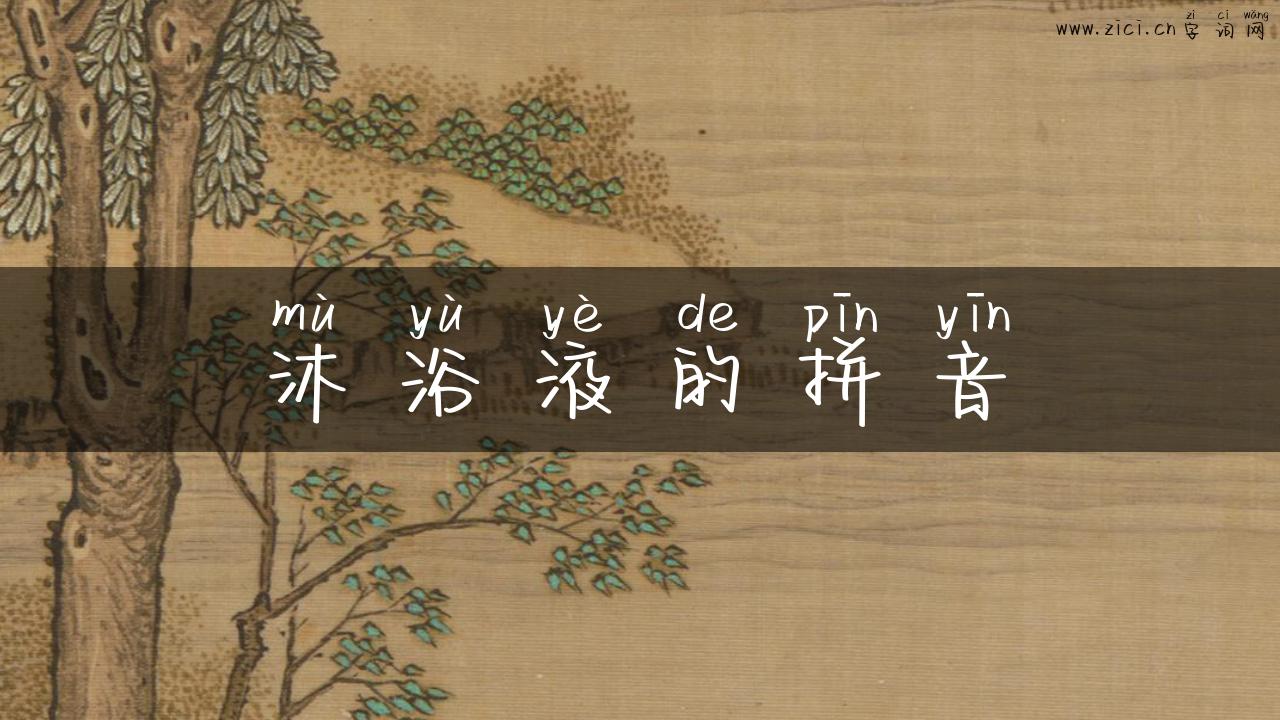 zì cí wǎng
www.zici.cn 字 词 网
mù yù yè de pīn yīn
沐 浴 液 的 拼 音